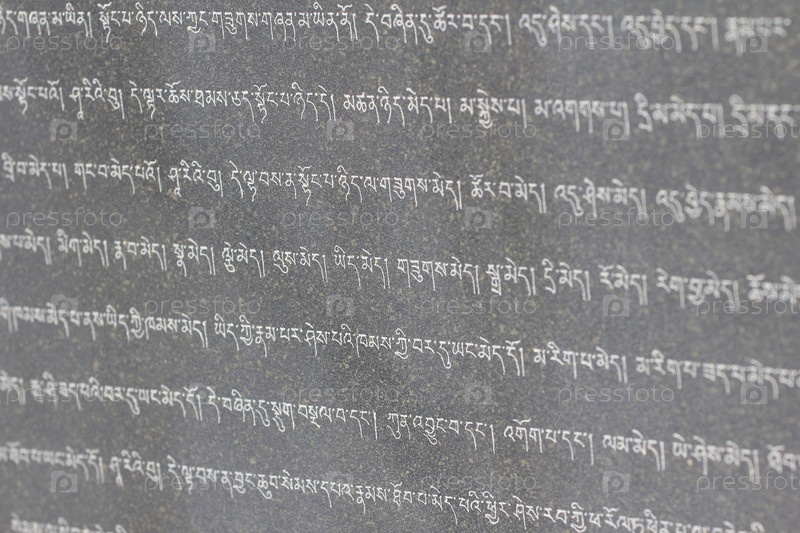 གཞན་མ་ཡིན། སྟོང་པ་ཉིད་ལས་ཀྱང་གཟུགས་གཞན་མ་ཡིན་ནོ། དེ་བཞིན་དུ་ཚོར་བ་དང་། འདུ་ཤེས་དང་། འདུ་བྱེད་དང་། རྣམ་པར་
སྟོང་པའོ། ཤཱ་རིའི་བུ། དེ་ལྟར་ཆོས་ཐམས་ཅད་སྟོང་པ་ཉིད་དེ། མཚན་ཉིད་མེད་པ། མ་སྐྱེས་པ། མ་འགགས་པ། དྲི་མ་མེད་པ། དྲི་མ་དང་
བྲི་བ་མེད་པ། གང་བ་མེད་པའོ། ཤཱ་རིའི་བུ། དེ་ལྟ་བས་ན་སྟོང་པ་ཉིད་ལ་གཟུགས་མེད། ཚོར་བ་མེད། འདུ་ཤེས་མེད། འདུ་བྱེད་རྣམས་མེད།
མེད། མིག་མེད། རྣ་བ་མེད། སྣ་མེད། ལྕེ་མེད། ལུས་མེད། ཡིད་མེད། གཟུགས་མེད། སྒྲ་མེད། དྲི་མེད། རོ་མེད། རེག་བྱ་མེད། ཆོས་མེད
ཁམས་མེད་པ་ནས་ཡིད་ཀྱི་ཁམས་མེད། ཡིད་ཀྱི་རྣམ་པར་ཤེས་པའི་ཁམས་ཀྱི་བར་དུ་ཡང་མེད་དོ། མ་རིག་པ་མེད། མ་རིག་པ་ཟད་པ་མེད་པ
མེད། རྒ་ཤི་ཟད་པའི་བར་དུ་ཡང་མེད་དོ། དེ་བཞིན་དུ་སྡུག་བསྔལ་བ་དང་། ཀུན་འབྱུང་བ་དང་། འགོག་པ་དང་། ལམ་མེད། ཡེ་ཤེས་མེད། ཐོབ་
ཐོབ་པ་ཡང་མེད་དོ། ཤཱ་རིའི་བུ། དེ་ལྟ་བས་ན་བྱང་ཆུབ་སེམས་དཔའ་རྣམས་ཐོབ་པ་མེད་པའི་ཕྱིར་ཤེས་རབ་ཀྱི་ཕ་རོལ་ཏུ་ཕྱིན་པ་
pressfoto